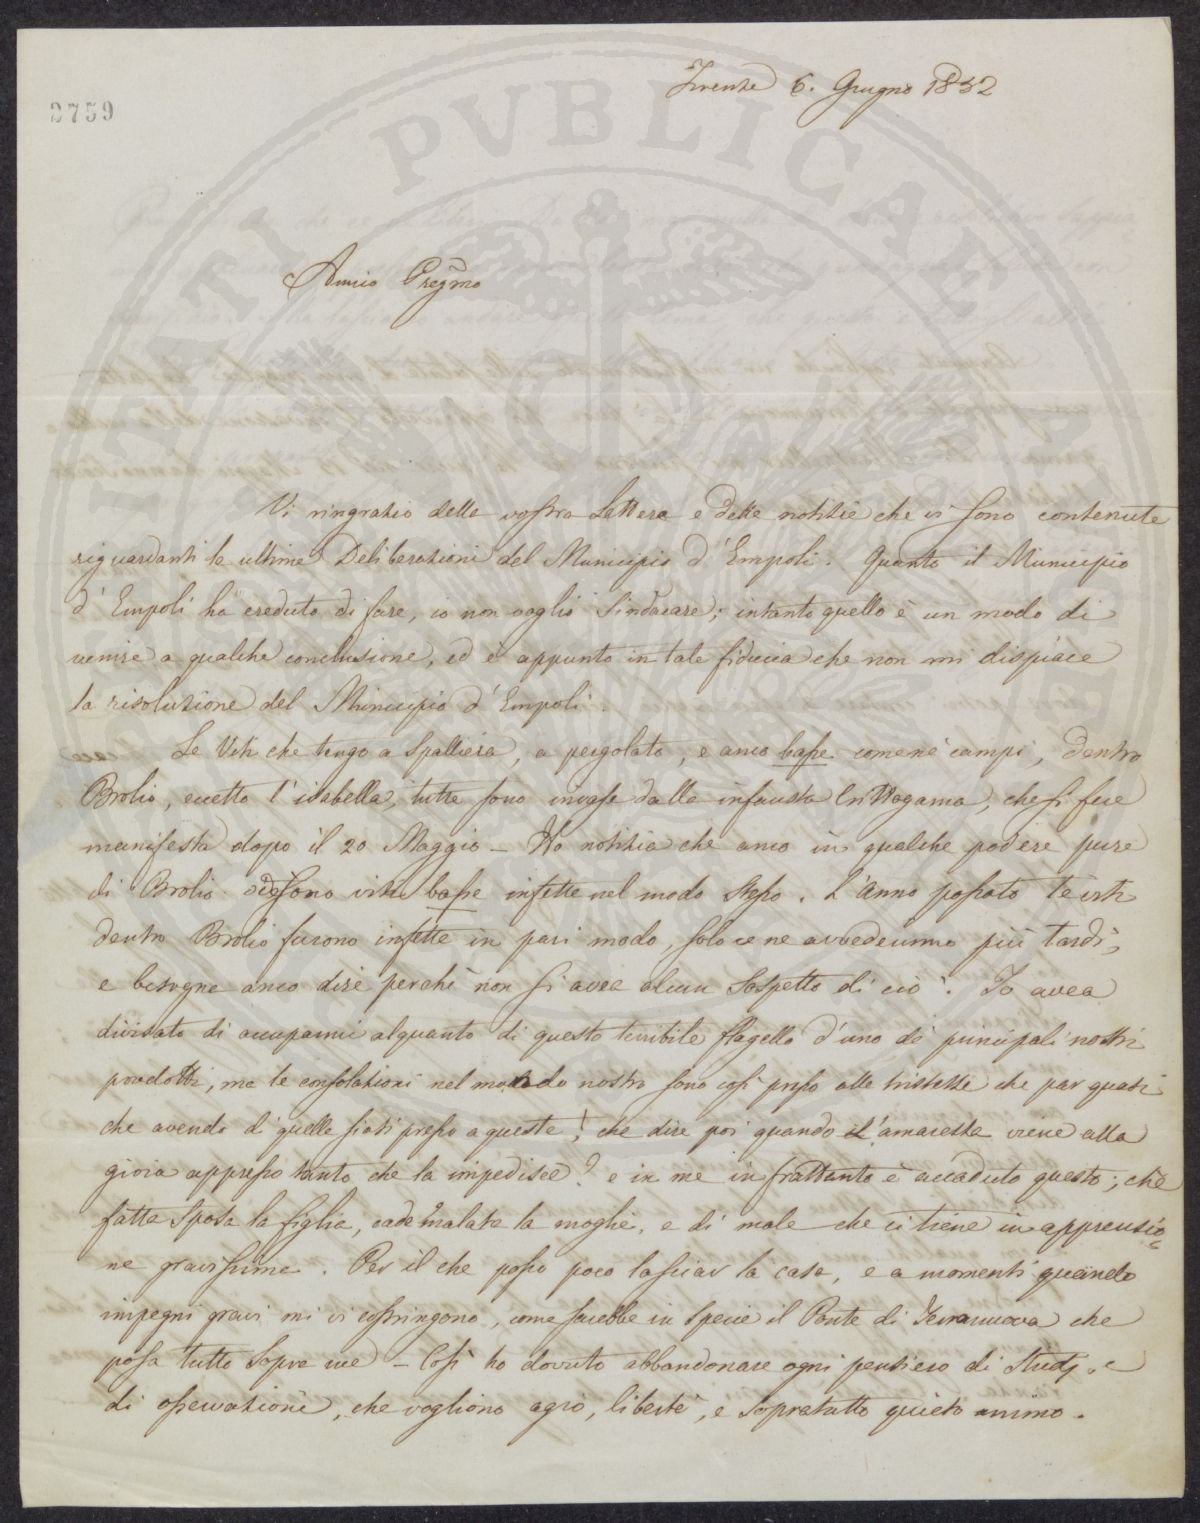 2759
Firenze 6. Giugno 1852
Amico Pregmo
Vi ringrazio della vostra Lettera e delle notizie che vi sono contenute
riguardanti le ultime Deliberazioni del Municipio d'Empoli. Quanto il Municipio
d'Empoli ha creduto di fare, io non voglio Sindacare; intanto quello è un modo di
venire a qualche conclusione, ed è appunto in tale fiducia che non mi dispiace
la risoluzione del Municipio d'Empoli.
Le Viti che tengo a Spalliera, a pergolato, e anco basse come ne' campi, dentro
Brolio, eccetto l'isabella, tutte sono invase dalla infausta Crittogama, che si fece
manifesta dopo il 20 Maggio – Ho notizia che anco in qualche podere pure
di Brolio sono viti basse infette nel modo stesso. L'Anno passato le viti
dentro Brolio furono infette in pari modo, solo ce ne avvedemmo più tardi,
e bisogna anco dire perchè non si avea alcun Sospetto di ciò. Io avea
divisato di occuparmi alquanto di questo terribile flagello d'uno dei principali nostri
prodotti, ma le consolazioni nel mondo nostro sono così presso alle tristezze che par quasi
che avendo di quelle siasi presso a queste! che dire poi quando l'amarezza viene alla
gioia appresso tanto che la impedisce? e in me in frattanto è accaduto questo; che
fatta Sposa la figlia, cade malata la moglie, e di male che ci tiene in apprensio=
ne gravissima. Per il che posso poco lasciar la casa, e a momenti quando
impegni gravi mi vi costringono, come sarebbe in Specie il Ponte di Terranuova che
posa tutto sopra me – Così ho dovuto abbandonare ogni pensiero di Studj, e
di osservazioni, che vogliono agio, libertà, e sopratutto quieto animo.
PUBLICAE